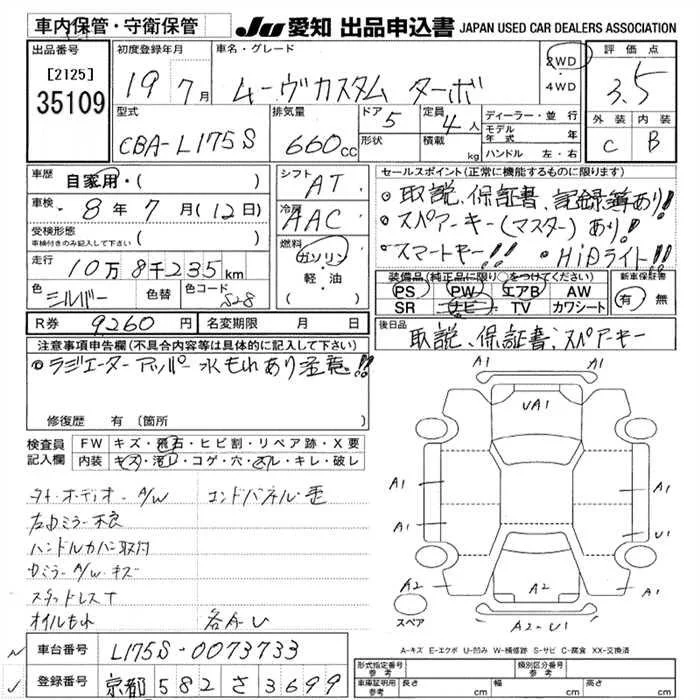 車内保管・守衛保管
JU 愛知 出品申込書 JAPAN USED CAR DEALERS ASSOCIATION
出品番号 初度登録年月 車名・グレード 評価点
[2125]
35109
19 7月 ムーヴカスタム ターボ 2WD ・ 4WD 3.5
型式 排気量 ドア 定員 ディーラー・並行 外装 内装
CBA-L175S 660cc 5 4人 形状 積載 kg モデル年式 年 C B
ハンドル 左・右
車歴 自家用・( ) シフト AT セールスポイント(正常に機能するものに限ります)
車検 8年7月(12日) 冷房 AAC
取説、保証書、記録簿あり!
受検形態 車検付きのみ記入して下さい ( )
スペアーキー(マスター)あり!
燃料 ガソリン・軽油
スマートキー!! HiDライト!!
走行 10万8千235km
色 シルバー 色替 色コード S28
装備品(純正品に限り○をつけてください) 新車保証書
PS PW エアB AW 有 無
SR ナビ TV カワシート
R券 9260円 名変期限 月 日
後日品 取説、保証書、スペアーキー
注意事項申告欄(不具合内容等は具体的に記入して下さい)
ラジエーター アッパー 水もれあり注意!!
修復歴 有 〔箇所 〕
検査員記入欄 FW キズ・飛石・ヒビ割・リペア跡・X要
内装 キズ・汚レ・コゲ・穴・スレ・キレ・破レ
オーディオ A/W エンドパネル・歪
左ロミラー不良
ハンドルカバー取付
ロミラーA/W・キズ
スタッドレスT
オイルもれ 各A・U
A1 A1
UA1
A1 A1
A1 U1
A2 A2 A1
A2・U1
スペア
A-キズ E-エクボ U-凹み W-補修跡 S-サビ C-腐食 XX-交換済
車台番号 L175S-0073733
登録番号 京都 582 さ 3699
形式指定番号 参考 類別区分番号 参考
車庫証明用 参考 長さ cm 幅 cm 高さ cm